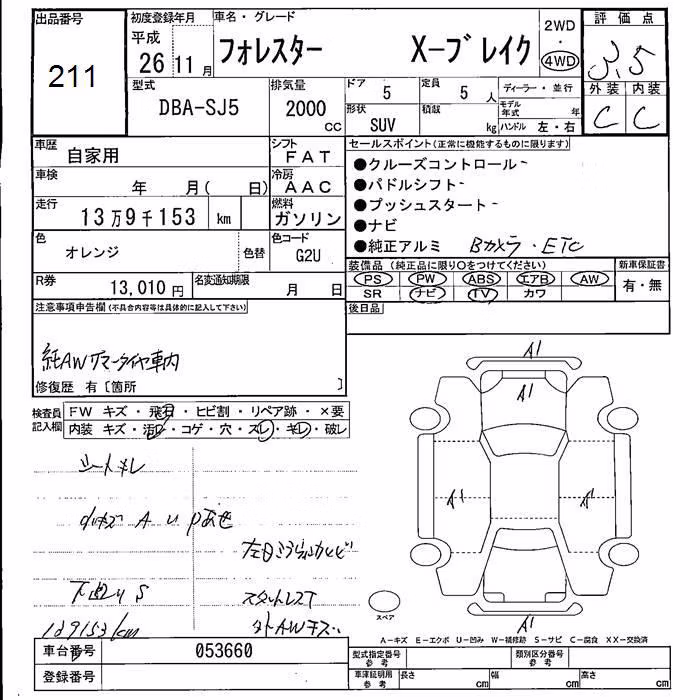 出品番号
211
初度登録年月
平成
26年11月
車名・グレード
フォレスター X−ブレイク
2WD
・
4WD
評価点
3.5
型式
DBA−SJ5
排気量
2000
CC
ドア 5
定員 5人
ディーラー・並行
形状
SUV
積載 kg
モデル年式 年
ハンドル 左・右
外装 内装
C C
車歴
自家用
シフト
FAT
車検
年 月( 日)
冷房
AAC
走行
13万9千153 km
燃料
ガソリン
色
オレンジ
色替
色コード
G2U
R券
13,010円
名変通知期限
月 日
セールスポイント(正常に機能するものに限ります)
●クルーズコントロール
●パドルシフト
●プッシュスタート
●ナビ
●純正アルミ Bカメラ・ETC
装備品(純正品に限り○をつけてください)
PS PW ABS エアB AW
SR ナビ TV カワ
新車保証書
有・無
後日品
注意事項申告欄(不具合内容等は具体的に記入して下さい)
純AWサマータイヤ車内
修復歴 有〔箇所 〕
検査員記入欄
FW キズ・飛石・ヒビ割・リペア跡・×要
内装 キズ・汚レ・コゲ・穴・スレ・キレ・破レ
シートキレ
A U P
下廻り S
スタットレスT
139153km
外AWキズ
A1
A1
A1
A1
A1
スペア
A−キズ E−エクボ U−凹み W−補修跡 S−サビ C−腐食 XX−交換済
車台番号
053660
登録番号
型式指定番号
参考
類別区分番号
参考
車庫証明用
参考
長さ cm
幅 cm
高さ cm